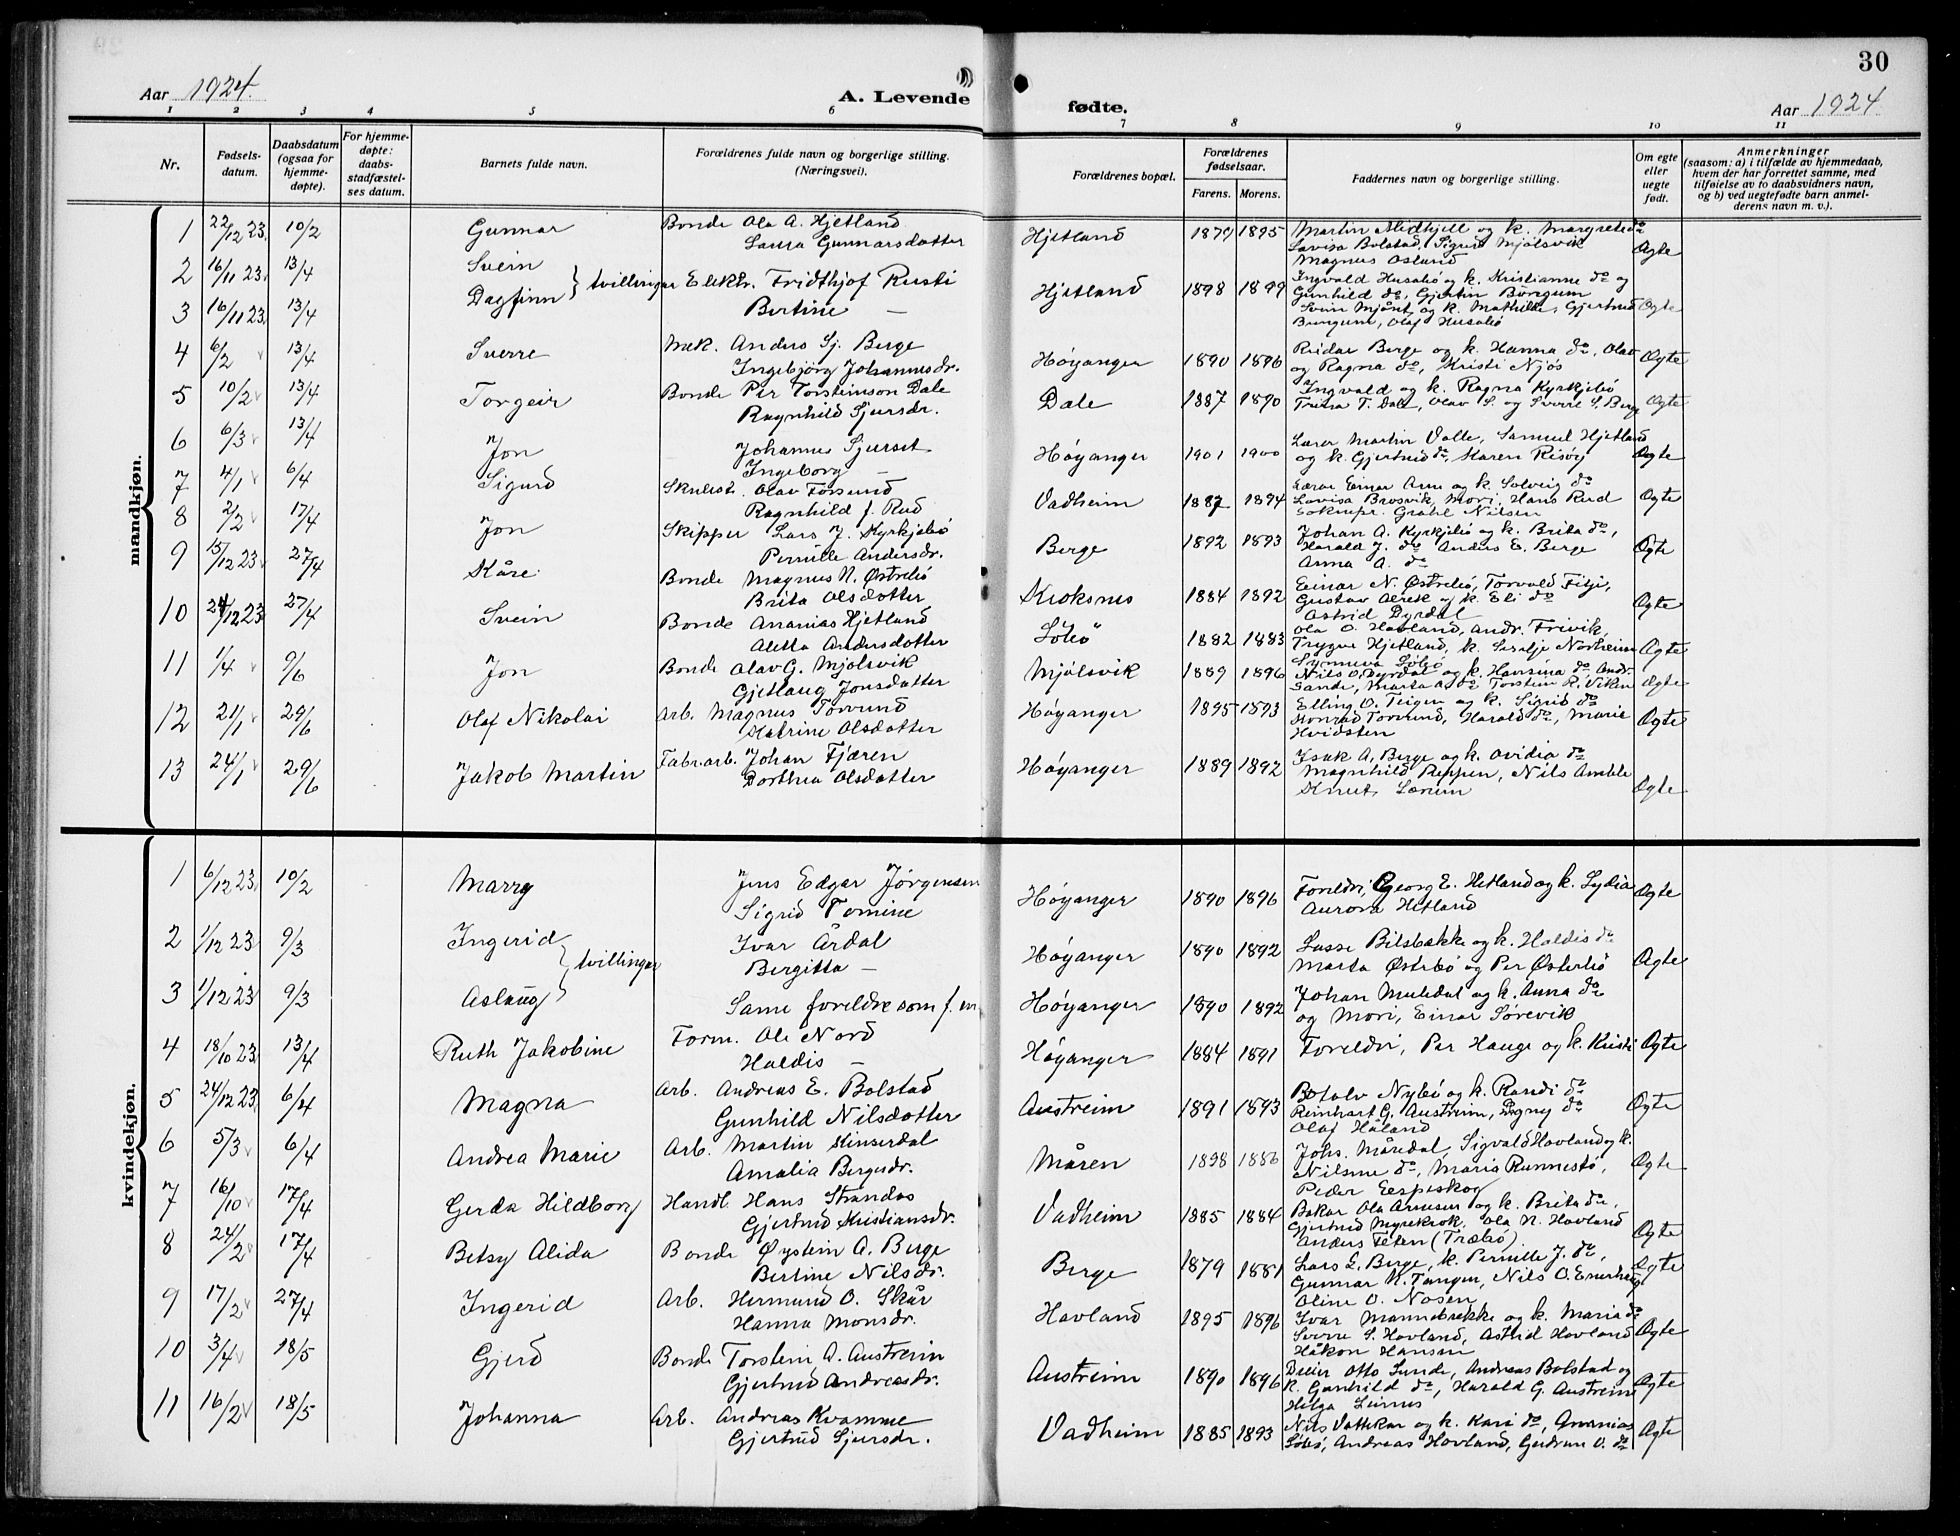 30
Aar 1924.
A. Levende fødte.
Aar 1924
1 2 3 4 5 6 7 8 9 10 11
Nr.
Fødsels-
datum.
Daabsdatum
(ogsaa for
hjemme-
døpte).
For hjemme-
døpte:
daabs-
stadfæstel-
ses datum.
Barnets fulde navn.
Forældrenes fulde navn og borgerlige stilling.
(Næringsvei).
Forældrenes bopæl.
Forældrenes
fødselsaar.
Farens. Morens.
Faddernes navn og borgerlige stilling.
Om egte
eller
uegte
født.
Anmerkninger
(saasom: a) i tilfælde av hjemmedaab,
hvem der har forrettet samme, med
tilføielse av to daabsvidners navn,
og b) ved uegtefødte barn anmel-
derens navn m. v.).
mandkjøn.
1 22/12 23 10/2 Gunnar Bonde Ola A. Hjetland Hjetland 1879 1895 Martin Midthjell og k. Margrete do Ægte
Laura Gunnarsdotter Lovisa Bolstad, Sigrid Mjølsvik
Magnus Osland
2 16/11 23 13/4 Svein } tvillingar Elektr. Fridthjof Rusti Hjetland 1898 1899 Ingvald Husabø og k. Kristianne do og Ægte
Gunhild do, Gjertin Børgum
3 16/11 23 13/4 Dagfinn Bertine — Svein Mjånt og k. Mathilde, Gjertrud
Borgum, Olaf Husabø
4 6/2 13/4 Sverre Mek. Anders Sj. Berge Høyanger 1890 1896 Reidar Berge og k. Hanna do, Olav Ægte
Ingebjörg Johannesdr. og Ragna do, Kristi Njøs
5 10/2 13/4 Torgeir Bonde Per Torsteinson Dale Dale 1887 1890 Ingvald og k. Ragna Kyrkjebø Ægte
Ragnhild Sjursdr. Trina T. Dale, Olav S. og Sverre S. Berge
6 6/3 13/4 Jon Johannes Sjurset Høyanger 1901 1900 Lærer Martin Valle, Samuel Hjetland Ægte
Ingeborg — og k. Gjertrud do, Maren Risøy
7 4/1 6/4 Sigurd Skulest. Olav Forsund Vadheim 1887 1894 Lærar Einar Arne og k. Solveig do Ægte
Ragnhild f. Rud Lovisa Brosvik, Mori, Hans Rud
8 2/2 17/4 Jon Skipper Lars J. Kyrkjebø Berge 1892 1893 Johan A. Kyrkjebø og k. Brita do, Ægte
Pernille Andersdr. Harald J. do Anders E. Berge
Anna A. do
9 15/12 23 27/4 Kåre Bonde Magnus N. Østrebø Kroksnes 1884 1892 Einar N. Østrebø, Torvald Fitje, Ægte
Brita Olsdotter Gustav Alrek og k. Eli do
Astrid Dyrdal
10 24/12 23 27/4 Svein Bonde Ananias Hjetland Söbö 1882 1883 Ola O. Havland, Andr. Frivik, Ægte
Aletta Andersdotter Trygve Hjetland, k. Sesilje Nordheim
Synneva Söbö
11 1/4 9/6 Jon Bonde Olav G. Mjølsvik Mjølsvik 1889 1896 Nils O. Dyrdal og k. Hansina do, Andr. Ægte
Gjetlaug Jonsdotter Sande, Marta A. do Torstein R. Viken
12 21/1 29/6 Olaf Nikolai Arb. Magnus Torvund Høyanger 1895 1893 Elling O. Teigen og k. Sigrid do Ægte
Katrine Olsdotter Konrad Torvund, Harald do, Marie
Hvidsten
13 24/1 29/6 Jakob Martin Fabr.arb. Johan Fjæren Høyanger 1889 1892 Isak A. Berge og k. Ovidia do Ægte
Dorthea Olsdotter Magnhild Reppen, Nils Amble
Knut Lærum
kvindekjøn.
1 6/12 23 10/2 Marry Jens Edgar Jörgensen Høyanger 1890 1896 Foreldri, Georg E. Hetland og k. Lydia Ægte
Sigrid Tomine Aurora Hetland
2 1/12 23 9/3 Ingerid } tvillingar Ivar Årdal Høyanger 1890 1892 Lasse Bilsbakke og k. Haldis do Ægte
Bergitta — Marta Østrebø og Per Østerbø
3 1/12 23 9/3 Aslaug Same foreldre som f. m. Høyanger 1890 1892 Johan Muledal og k. Anna do
og Mori, Einar Sørevik
4 18/10 23 13/4 Ruth Jakobine Form. Ole Nord Høyanger 1884 1891 Foreldri, Per Hauge og k. Kristi Ægte
Haldis —
5 24/12 23 6/4 Magna Arb. Andreas E. Bolstad Austreim 1891 1893 Botolv Nybø og k. Randi do Ægte
Gunhild Nilsdotter Reinhart G. Austreim, Dagny do
Olaf Håland
6 5/3 6/4 Andrea Marie Arb. Martin Kinserdal Måren 1898 1886 Johs. Måredal, Sigvald Hovland og k. Ægte
Amalia Bergesdr. Nilsine do, Maria Runnestø,
Peder Eespeskog
7 16/10 17/4 Gerda Hildborg Handl. Hans Strandos Vadheim 1885 1884 Bakar Ola Arnesen og k. Brita do, Ægte
Gjertrud Kristiansdr. Gjertrud Myrekrok, Ola N. Hovland
Anders Feten (Træbø).
8 24/2 17/4 Betsy Alida Bonde Øystein A. Berge Berge 1879 1881 Lars L. Berge, k. Pernille J. do, Ægte
Bertine Nilsdr. Gunnar K. Tangen, Nils O. Enerhaug
Oline O. Nosen
9 17/2 27/4 Ingerid Arb. Hermund O. Skår Havland 1895 1896 Ivar Mannebrekke og k. Maria do Ægte
Hanna Monsdr. Sverre S. Hovland, Astrid Hovland
Håkon Hansen
10 3/4 18/5 Gjerd Bonde Torstein A. Austreim Austreim 1890 1896 Dreier Otto Sunde, Andreas Bolstad og Ægte
Gjertrud Andreasdr. k. Gunhild do, Harald G. Austreim
Helga Leirnes
11 16/2 18/5 Johanna Arb. Andreas Kvamme Vadheim 1885 1893 Nils Vattekar og k. Kari do, Ananias Ægte
Gjertrud Sjursdr. Söbö, Andreas Hovland, Gudrun O. do